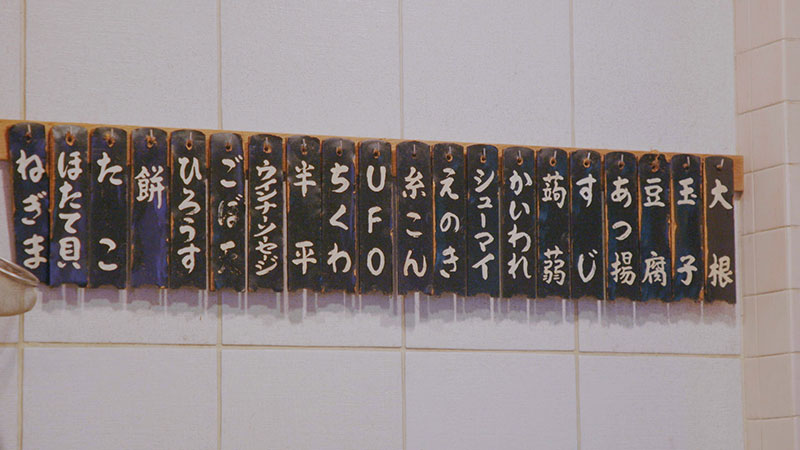 大根
玉子
豆腐
あつ揚
すじ
蒟蒻
かいわれ
シューマイ
えのき
糸こん
UFO
ちくわ
半平
ウインナーソーセージ
ごぼ天
ひろうす
餅
たこ
ほたて貝
ねぎま